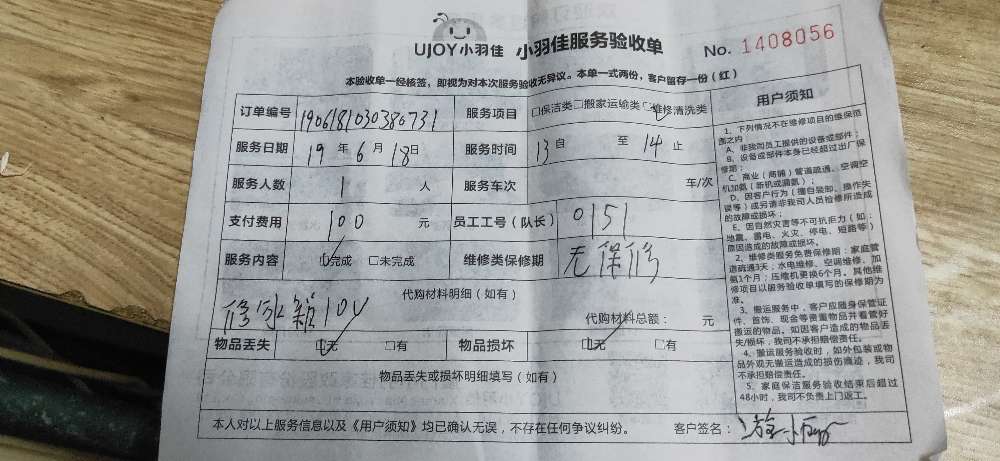 UJOY小羽佳 小羽佳服务验收单 No. 1408056
本验收单一经核签，即视为对本次服务验收无异议。本单一式两份，客户留存一份（红）
订单编号 190618103038673 1 服务项目 □保洁类□搬家运输类□维修清洗类
服务日期 19 年 6 月 18 日 服务时间 13 自 至 14 止
服务人数 1 人 服务车次 车/次
支付费用 100 元 员工工号（队长） 0151
服务内容 □完成 □未完成 维修类保修期 无保修
代购材料明细（如有）
修水 100
代购材料总额： 元
物品丢失 □无 □有 物品损坏 □无 □有
物品丢失或损坏明细填写（如有）
本人对以上服务信息以及《用户须知》均已确认无误，不存在任何争议纠纷。 客户签名：
用户须知
1、下列情况不在维修项目的维保范
围之内
A、非我司员工提供的设备或部件；
B、设备或部件本身已经超过出厂保
修期；
C、商业（商铺）管道疏通、空调空
机加氨（新机或漏氨）；
D、因客户行为（擅自装卸、操作失
误等）或另请非我司人员检修所造成
的故障或损坏；
E、因自然灾害等不可抗拒力（如：
地震、雷电、火灾、停电、短路等）
原因造成的故障或损坏。
2、维修类服务免费保修期：家庭管
道疏通3天；水电维修、空调维修、加
氨1个月；压缩机更换6个月。其他维
修项目以服务验收单填写的保修期为
准。
3、搬运服务中，客户应随身保管证
件、首饰、现金等贵重物品并看管好
搬运的物品。如因客户造成的物品丢
失/损坏，我司不承担赔偿责任。
4、搬运服务验收时，如外包装或物
品外观无搬运造成的损伤痕迹，我司
不承担赔偿责任。
5、家庭保洁服务验收结束后超过
48小时，我司不负责上门返工。